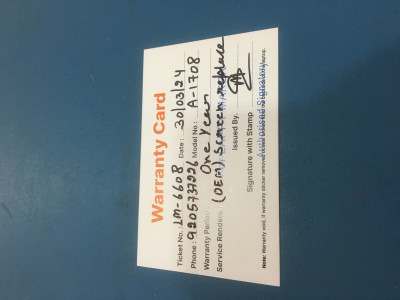 Warranty Card
Ticket No.: LM-6608 Date: 30/03/24
Phone: 9205737226 Model No: A-1708
Warranty Period One Year
Service Renders (OEM) Screen replace
Issued By
Authorised Signatory
Signature with Stamp
Note: Warranty void, if warranty sticker removed